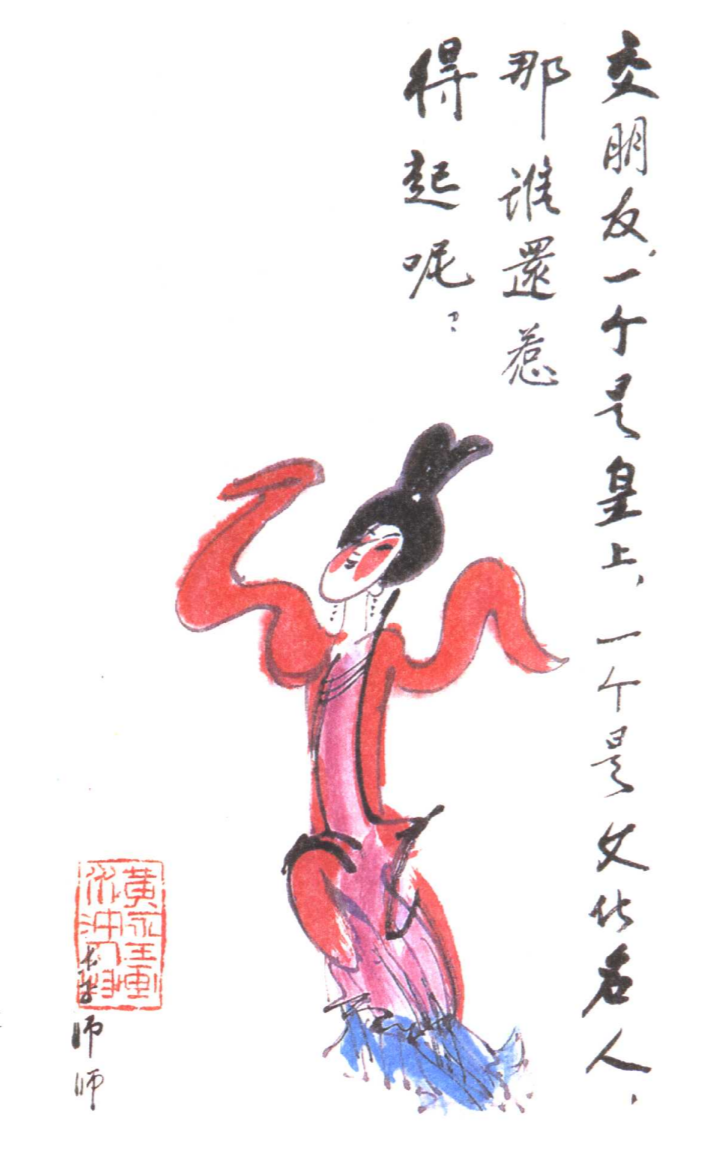 交朋友,一个是皇上,一个是文化名人,
那谁還惹
得起呢?
李师师
黄永玉画
水浒人物